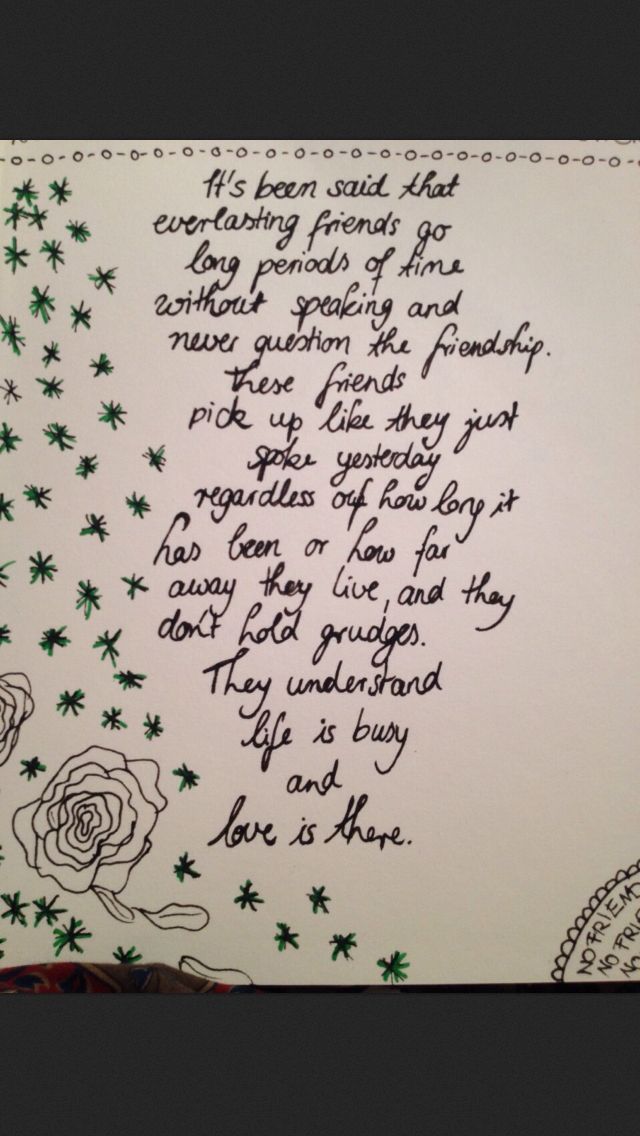 It's been said that
everlasting friends go
long periods of time
without speaking and
never question the friendship.
These friends
pick up like they just
spoke yesterday
regardless of how long it
has been or how far
away they live, and they
don't hold grudges.
They understand
life is busy
and
love is there.
NO FRIEND
NO FRIE
NO